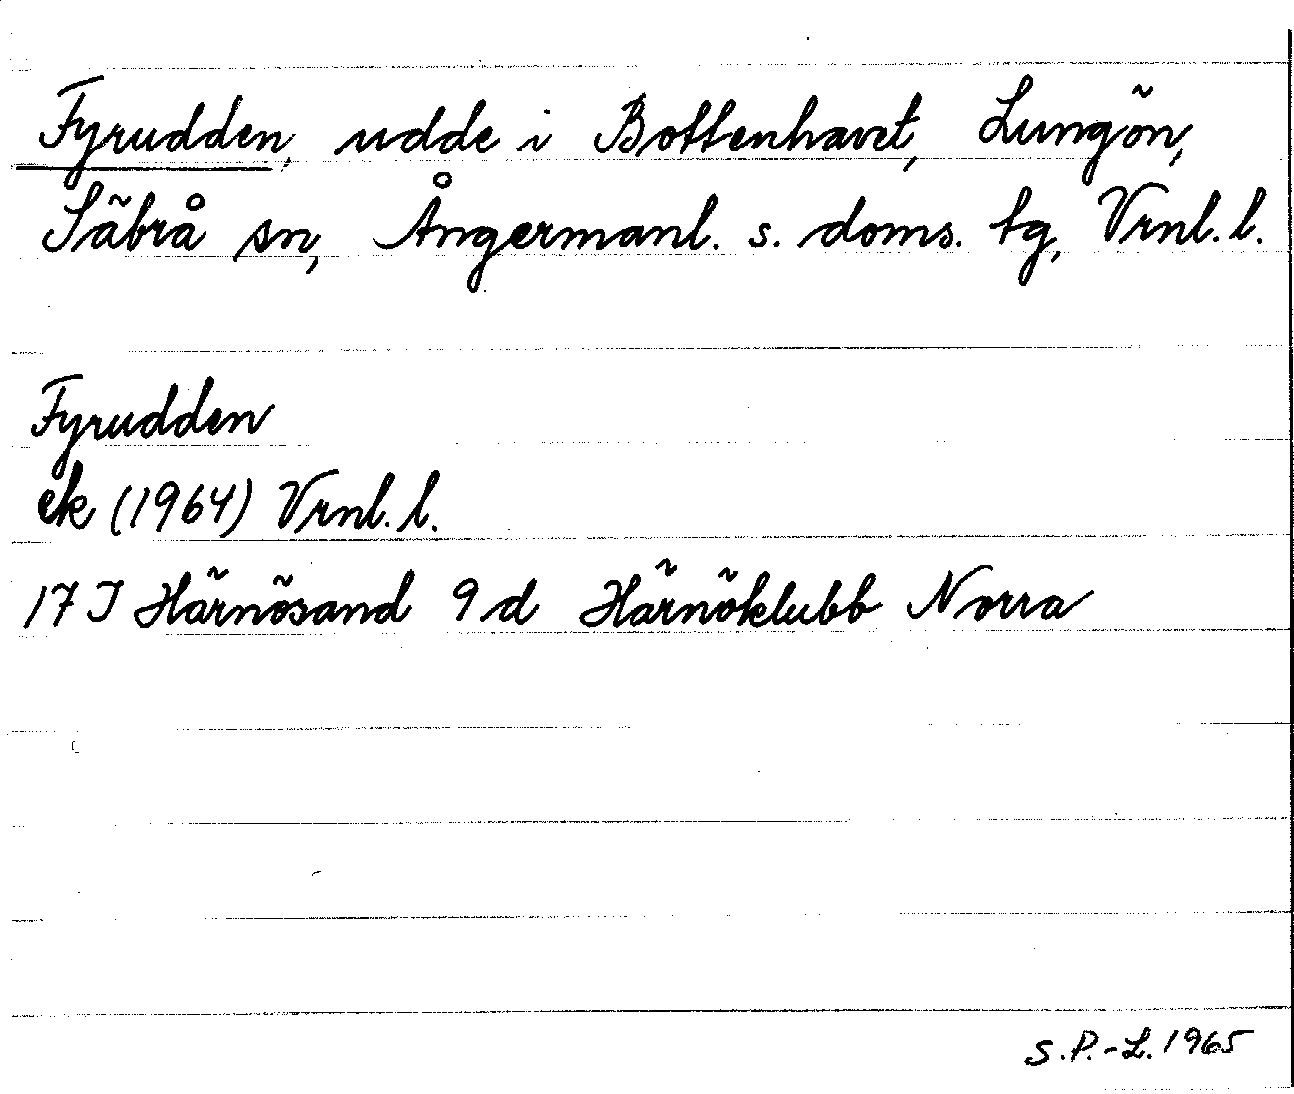 Fyrudden, udde i Bottenhavet, Lungön,
Säbrå sn, Ångermanl. s. doms. tg, Vrnl. l.
Fyrudden
ek (1964) Vrnl. l.
17 I Härnösand 9 d Härnöklubb Norra
S.P.-L. 1965